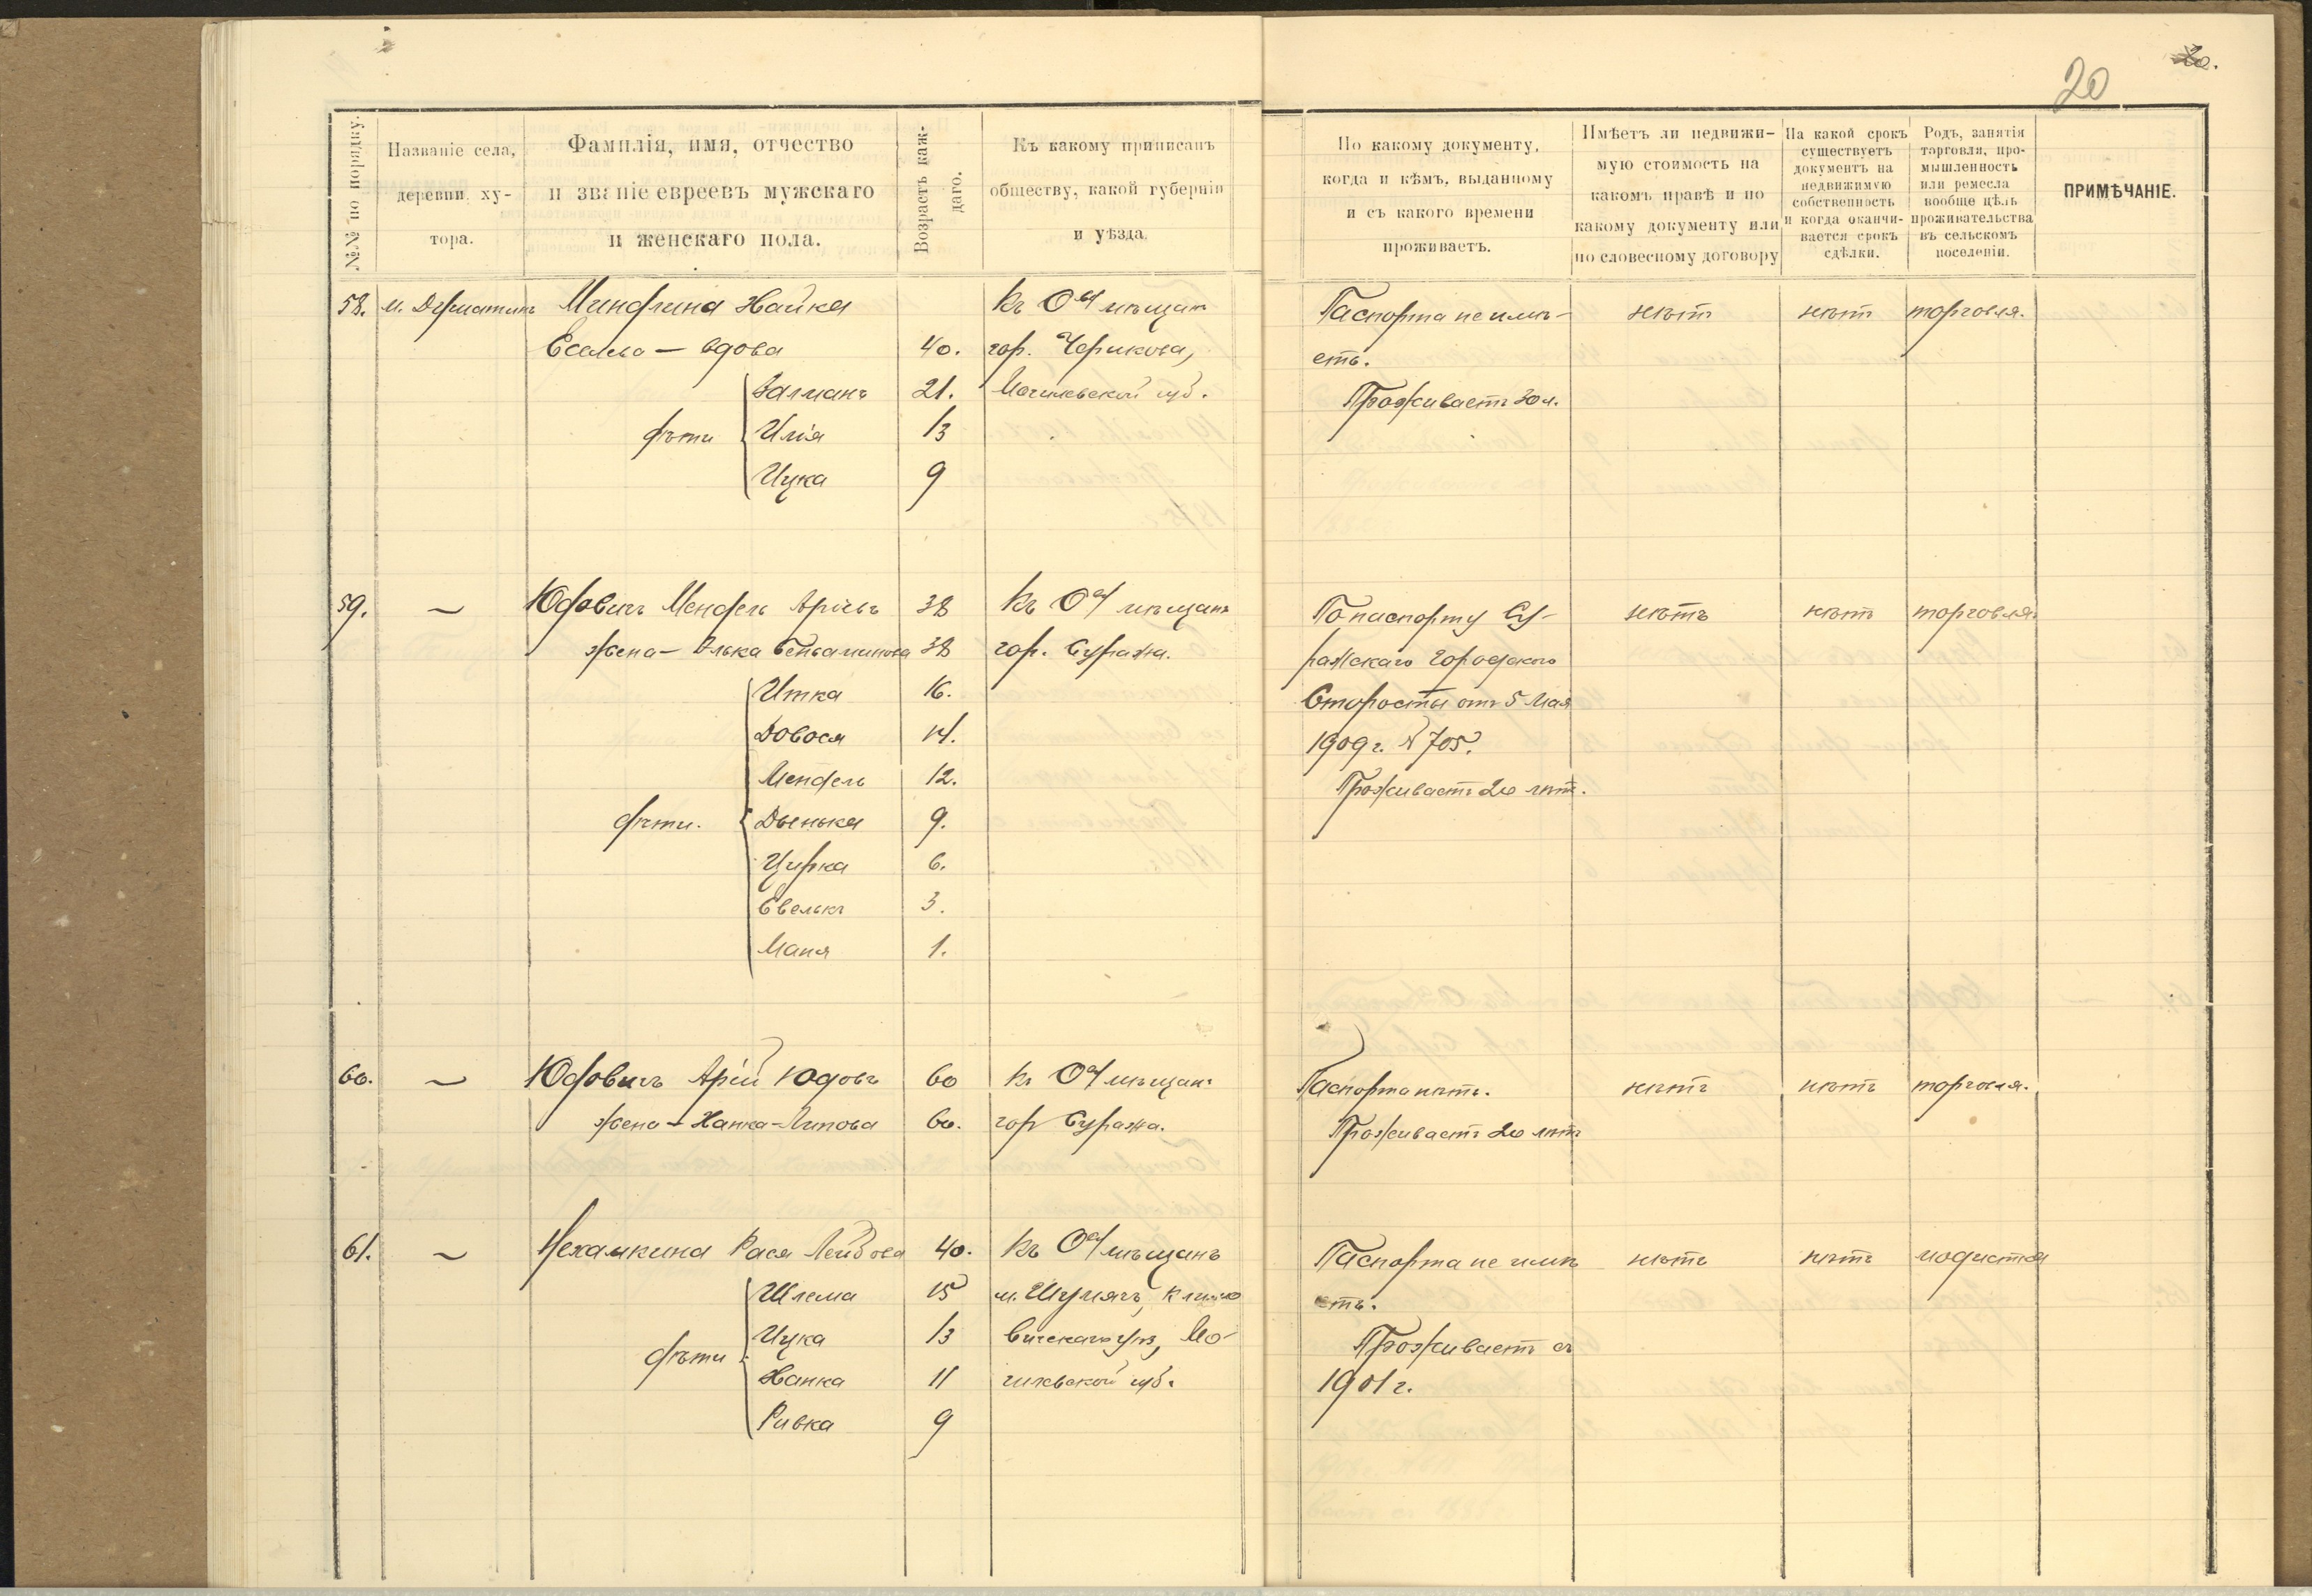 20
20.
№№ по порядку.
Названіе села,
деревни, ху-
тора.
Фамилія, имя, отчество
и званіе евреевъ мужскаго
и женскаго пола.
Возрастъ каж-
даго.
Къ какому приписанъ
обществу, какой губерніи
и уѣзда.
По какому документу,
когда и кѣмъ, выданному
и съ какого времени
проживаетъ.
Имѣетъ ли недвижи-
мую стоимость на
какомъ правѣ и по
какому документу или
по словесному договору
На какой срокъ
существуетъ
документъ на
недвижимую
собственность
и когда оканчи-
вается срокъ
сдѣлки.
Родъ, занятія
торговля, про-
мышленность
или ремесла
вообще цѣль
проживательства
въ сельскомъ
поселеніи.
ПРИМѢЧАНІЕ.
58. м. Миндлина Хайка Къ О-ву мѣщан Паспорта не имѣ- нѣтъ нѣтъ торговля.
вдова 40. гор. Черикова, етъ.
Залманъ 21. Могилевской губ. Проживаетъ 30 л.
дѣти Илія 13
Ицка 9
59. — Юдовичъ Мендель Арьевъ 38 Къ О-ву мѣщанъ По паспорту Су- нѣтъ нѣтъ торговля.
жена — Элька Беньаминова 38 гор. Суража. ражскаго Городского
Итка 16. Старосты отъ 5 Мая
Довося 14. 1909 г. № 705.
Мендель 12. Проживаетъ 20 лѣтъ.
дѣти. Дынька 9.
Цирка 6.
3.
Маня 1.
60. — Юдовичъ Арій Юдовъ 60 Къ О-ву мѣщан. Паспорта нѣтъ. нѣтъ нѣтъ торговля.
жена — Ханка Липова 60. гор Суража. Проживаетъ 20 лѣтъ
61. — Нехамкина Рася Лейбова 40. Къ О-ву мѣщанъ Паспорта не имѣ нѣтъ нѣтъ модистка
Шлема 15 м. Шумячъ, Климо етъ.
Ицка 13 вичскаго у., Мо- Проживаетъ съ
дѣти Ханка 11 гилевской губ. 1901 г.
Ривка 9